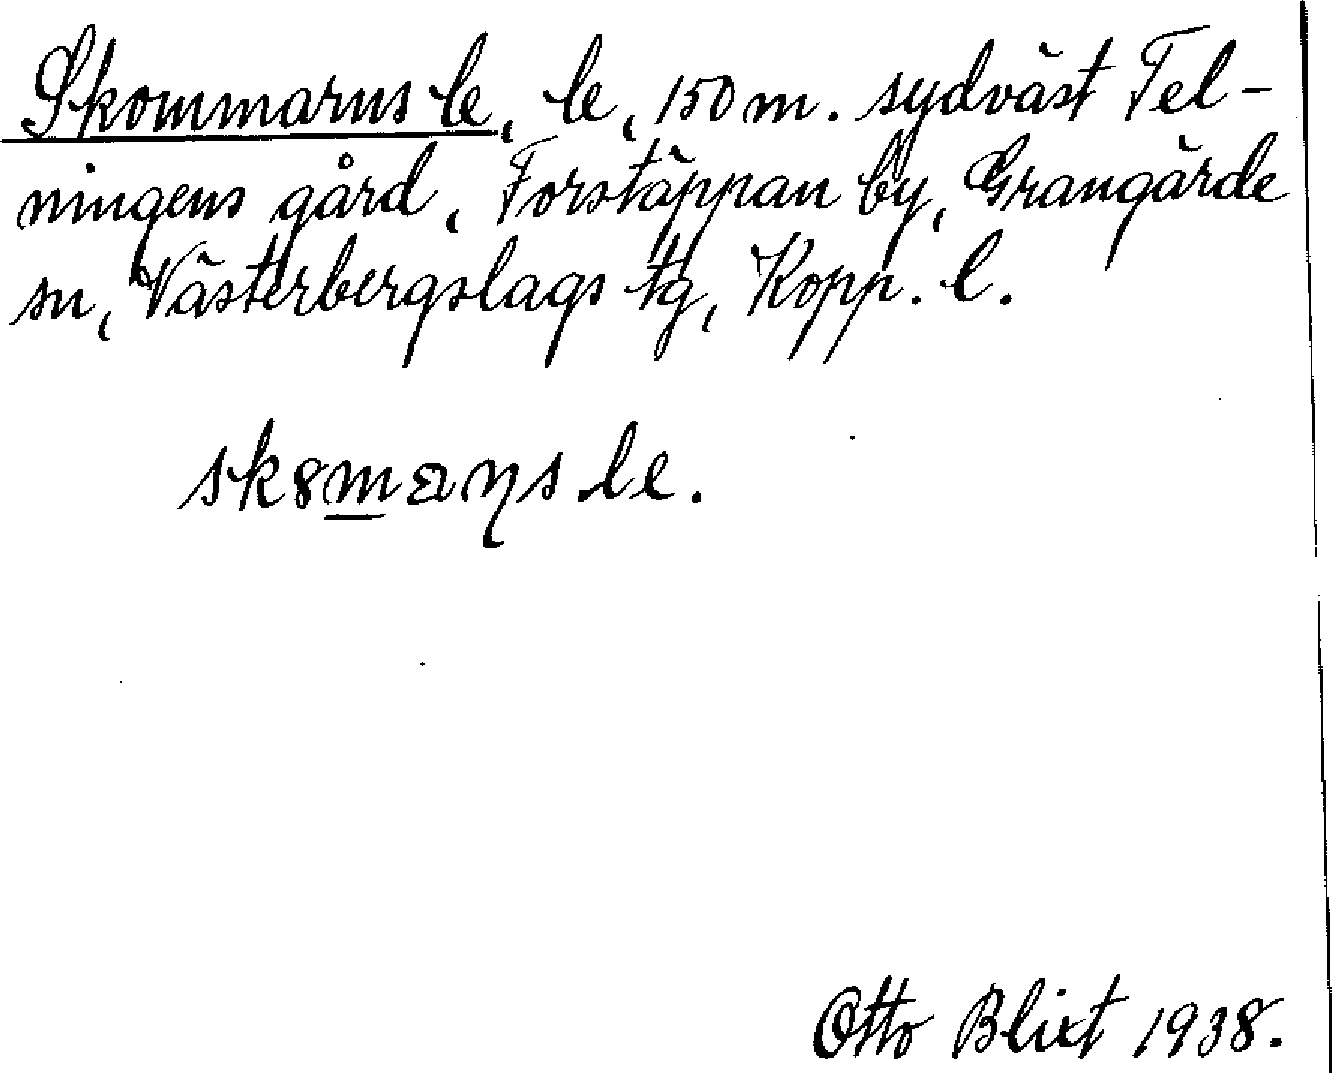 Skommarns le, le, 150 m. sydväst Tel-
ningens gård, Forstäppan by, Grangärde
sn, Västerbergslags tg, Kopp. l.
sk8maṇs le.
Otto Blixt 1938.